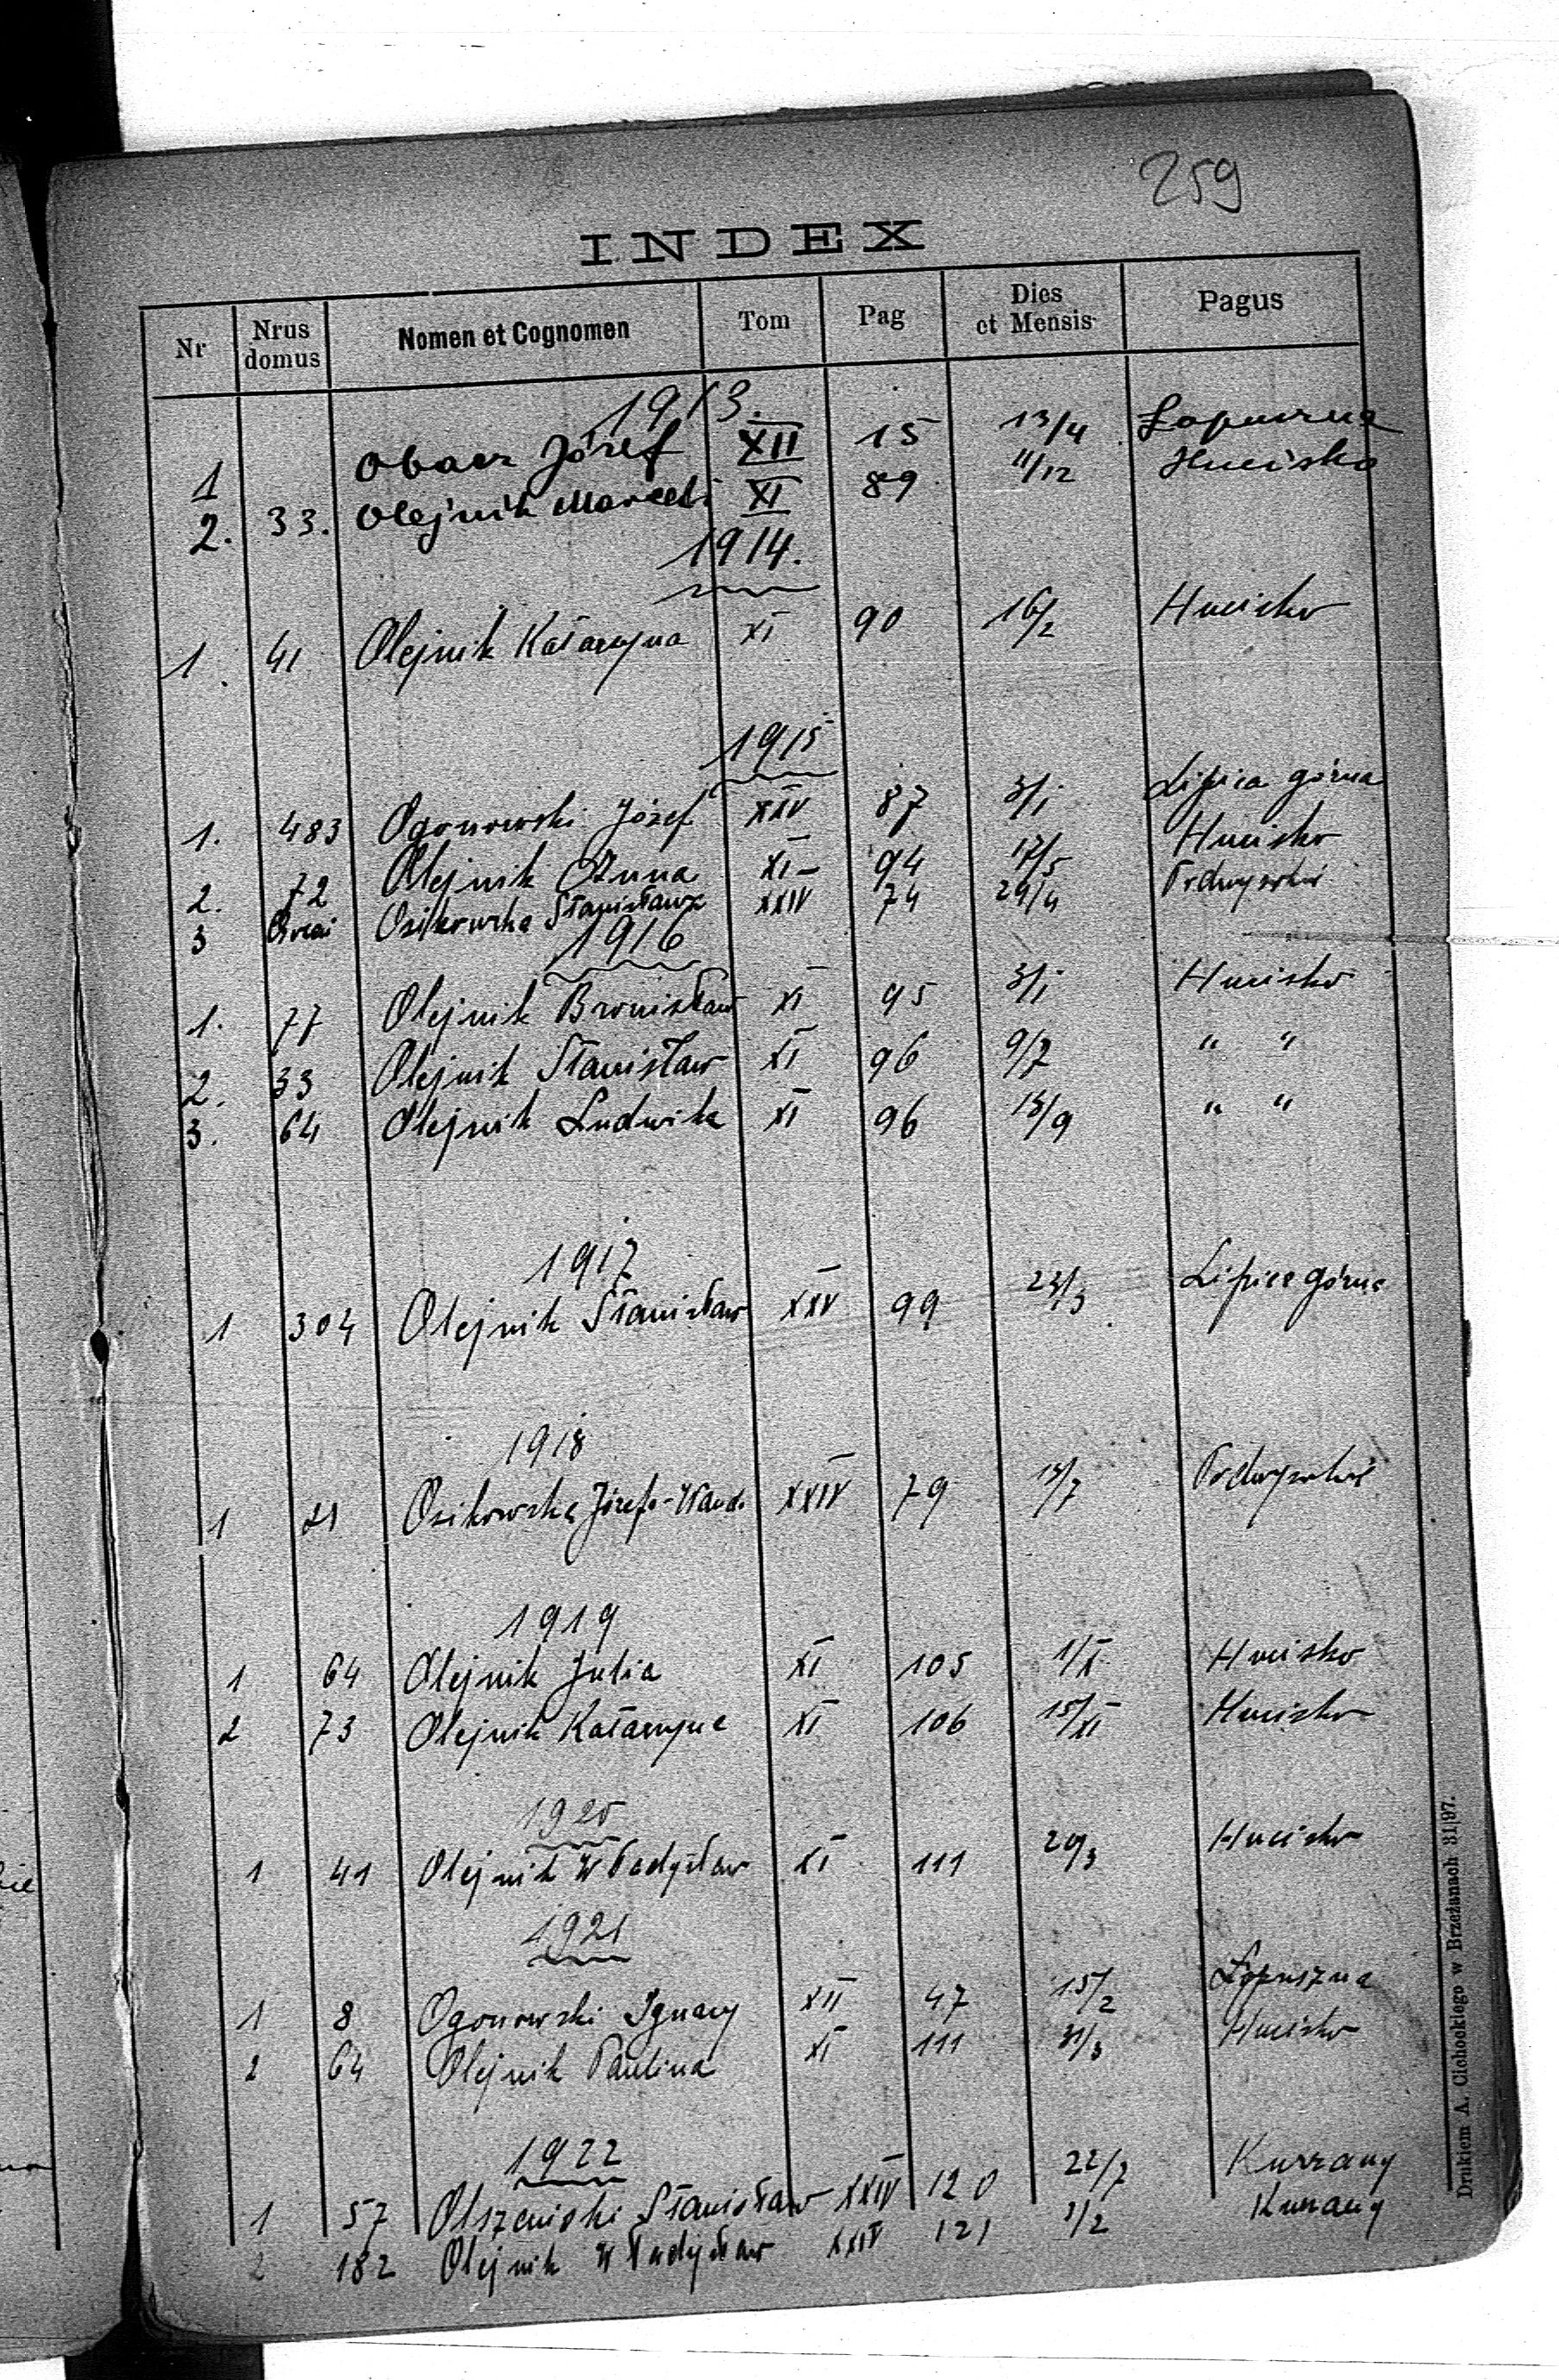 259
INDEX
Nr Nrus domus Nomen et Cognomen Tom Pag Dies et Mensis Pagus
1913.
1 Obacz Józef XII 15 13/4 Łopuszna
2. 33. Olejnik Marceli XI 89 11/12 Hucisko
1914.
1. 41 Olejnik Katarzyna XI 90 16/2 Hucisko
1915
1. 483 Ogonowski Józef XXV 87 3/1 Lipica górna
2. 72 Olejnik Anna XI 94 17/5 Hucisko
3 Osikowska Stanisława XXIV 74 29/4
1916
1. 77 Olejnik Bronisław XI 95 3/1 Hucisko
2. 33 Olejnik Stanisław XI 96 9/7 " "
3. 64 Olejnik Ludwik XI 96 13/9 " "
1917
1 304 Olejnik Stanisław XXV 99 23/3 Lipica górna
1918
1 21 Osikowska Józefa-Wand. XXIV 79
1919
1 64 Olejnik Julia XI 105 1/X Hucisko
2 73 Olejnik Katarzyna XI 106 15/XI Hucisko
1920
1 41 Olejnik Władysław XI 111 29/3 Hucisko
1921
1 8 Ogonowski Ignacy XII 47 15/2 Łopuszna
2 64 Olejnik Paulina XI 111 31/3 Hucisko
1922
1 57 Olszeniski Stanisław XXIV 120 22/7 Kurzany
2 182 Olejnik Władysław XXIV 121 1/2 Kurzany
Drukiem A. Cichockiego w Brzeżanach 31|97.